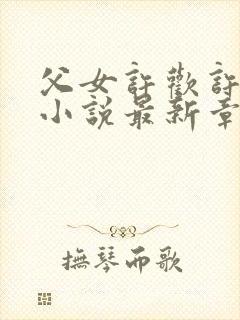 父女許歡許
小說最新章
撫琴而歌